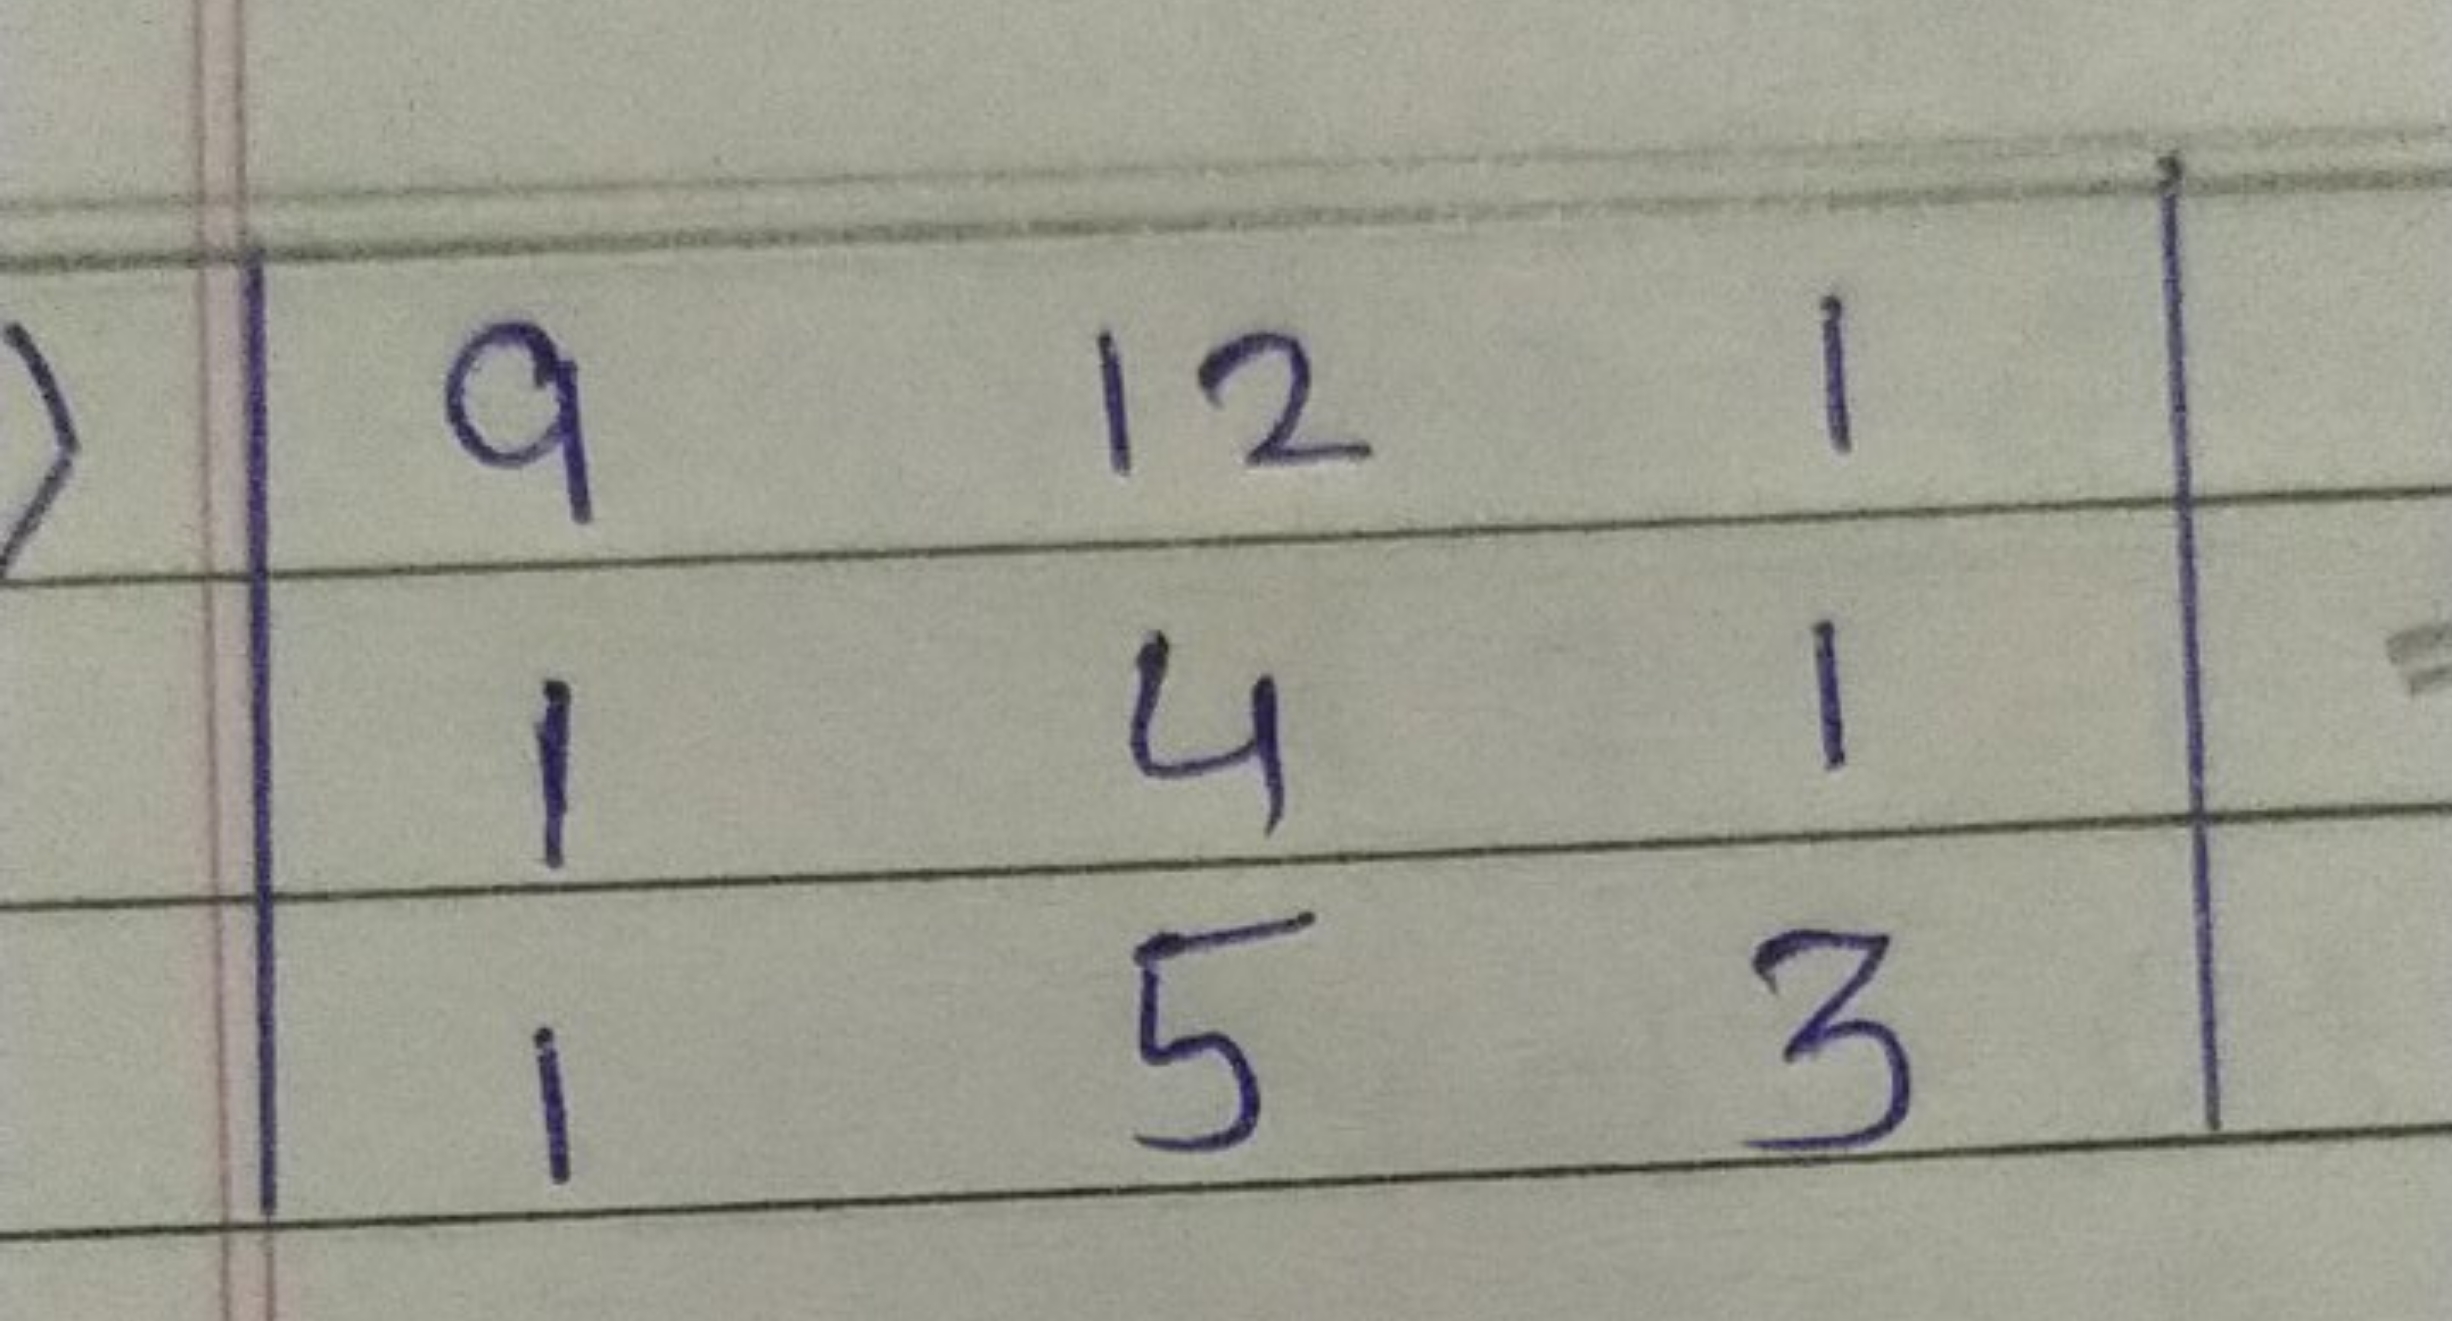 ) 9 12 1
1 4 1 =
1 5 3